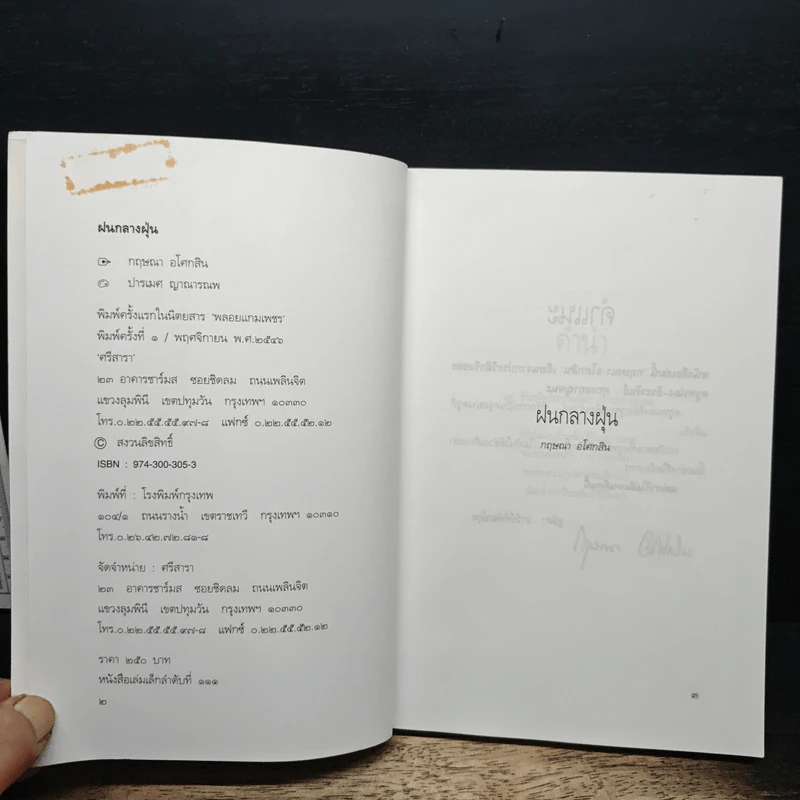 ฝนกลางฝุ่น
กฤษณา อโศกสิน
ปารเมศ ญาณารณพ
พิมพ์ครั้งแรกในนิตยสาร 'พลอยแกมเพชร'
พิมพ์ครั้งที่ ๑ / พฤศจิกายน พ.ศ.๒๕๔๖
'ศรีสารา'
๒๓ อาคารชาร์มส ซอยชิดลม ถนนเพลินจิต
แขวงลุมพินี เขตปทุมวัน กรุงเทพฯ ๑๐๓๓๐
โทร.๐.๒๒.๕๕.๕๕.๙๗-๘ แฟกซ์ ๐.๒๒.๕๕.๕๒.๑๒
© สงวนลิขสิทธิ์
ISBN : 974-300-305-3
พิมพ์ที่ : โรงพิมพ์กรุงเทพ
๑๐๔/๑ ถนนรางน้ำ เขตราชเทวี กรุงเทพฯ ๑๐๓๑๐
โทร.๐.๒๖.๔๒.๗๒.๘๑-๘
จัดจำหน่าย : ศรีสารา
๒๓ อาคารชาร์มส ซอยชิดลม ถนนเพลินจิต
แขวงลุมพินี เขตปทุมวัน กรุงเทพฯ ๑๐๓๓๐
โทร.๐.๒๒.๕๕.๕๕.๙๗-๘ แฟกซ์ ๐.๒๒.๕๕.๕๒.๑๒
ราคา ๒๕๐ บาท
หนังสือเล่มเล็กลำดับที่ ๑๑๑
๒
ฝนกลางฝุ่น
กฤษณา อโศกสิน
๓